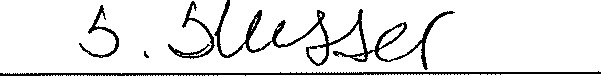 S. Slusser